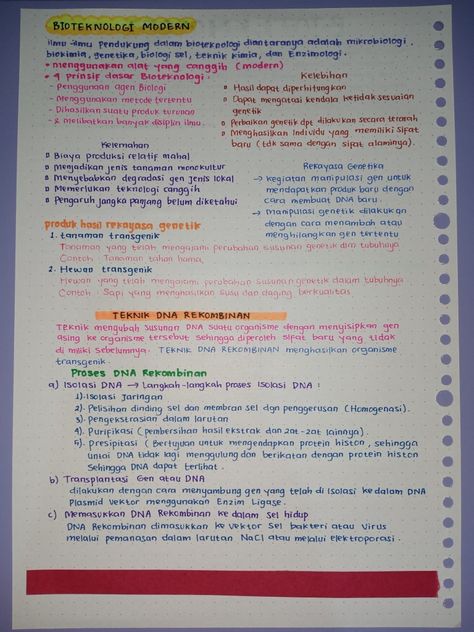 BIOTEKNOLOGI MODERN
Ilmu-ilmu pendukung dalam bioteknologi diantaranya adalah mikrobiologi,
biokimia, genetika, biologi sel, teknik kimia, dan Enzimologi.
• menggunakan alat yang canggih (modern)
• 4 prinsip dasar Bioteknologi.
- Penggunaan agen Biologi
- Menggunakan metode tertentu
- Dihasilkan suatu produk turunan
- & melibatkan banyak disiplin ilmu.
Kelebihan
Hasil dapat diperhitungkan
Dapat mengatasi kendala ketidaksesuaian
genetik
Perbaikan genetik dpt dilakukan secara terarah
Menghasilkan Individu yang memiliki sifat
baru (tdk sama dengan sifat alaminya).
Kelemahan
Biaya produksi relatif mahal
Menjadikan jenis tanaman monokultur
Menyebabkan degradasi gen jenis lokal
Memerlukan teknologi canggih
Pengaruh jangka panjang belum diketahui
Rekayasa Genetika
→ kegiatan manipulasi gen untuk
mendapatkan produk baru dengan
cara membuat DNA baru.
→ Manipulasi genetik dilakukan
dengan cara menambah atau
menghilangkan gen tertentu
produk hasil rekayasa genetik
1. tanaman transgenik
Tanaman yang telah mengalami perubahan susunan genetik dlm tubuhnya
Contoh : Tanaman tahan hama,
2. Hewan transgenik
Hewan yang telah mengalami perubahan susunan genetik dalam tubuhnya
Contoh : Sapi yang menghasilkan susu dan daging berkualitas
TEKNIK DNA REKOMBINAN
TEKNIK mengubah susunan DNA suatu organisme dengan menyisipkan gen
asing ke organisme tersebut sehingga diperoleh sifat baru yang tidak
di miliki sebelumnya. TEKNIK DNA REKOMBINAN menghasilkan organisme
transgenik.
Proses DNA Rekombinan
a) Isolasi DNA → Langkah-langkah proses Isolasi DNA :
1). Isolasi Jaringan
2). Pelisihan dinding sel dan membran sel dgn penggerusan (Homogenasi).
3). Pengekstrasian dalam larutan
4). Purifikasi (pembersihan hasil ekstrak dan zat-zat lainnya).
5). presipitasi (Bertujuan untuk mengendapkan protein histon, sehingga
untai DNA tidak lagi menggulung dan berikatan dengan protein histon
Sehingga DNA dapat terlihat.
b) Transplantasi Gen atau DNA
dilakukan dengan cara menyambung gen yang telah di Isolasi ke dalam DNA
Plasmid vektor menggunakan Enzim Ligase.
c) Memasukkan DNA Rekombinan ke dalam sel hidup
DNA Rekombinan dimasukkan ke vektor sel bakteri atau Virus
melalui pemanasan dalam larutan NaCl atau melalui elektroporasi.